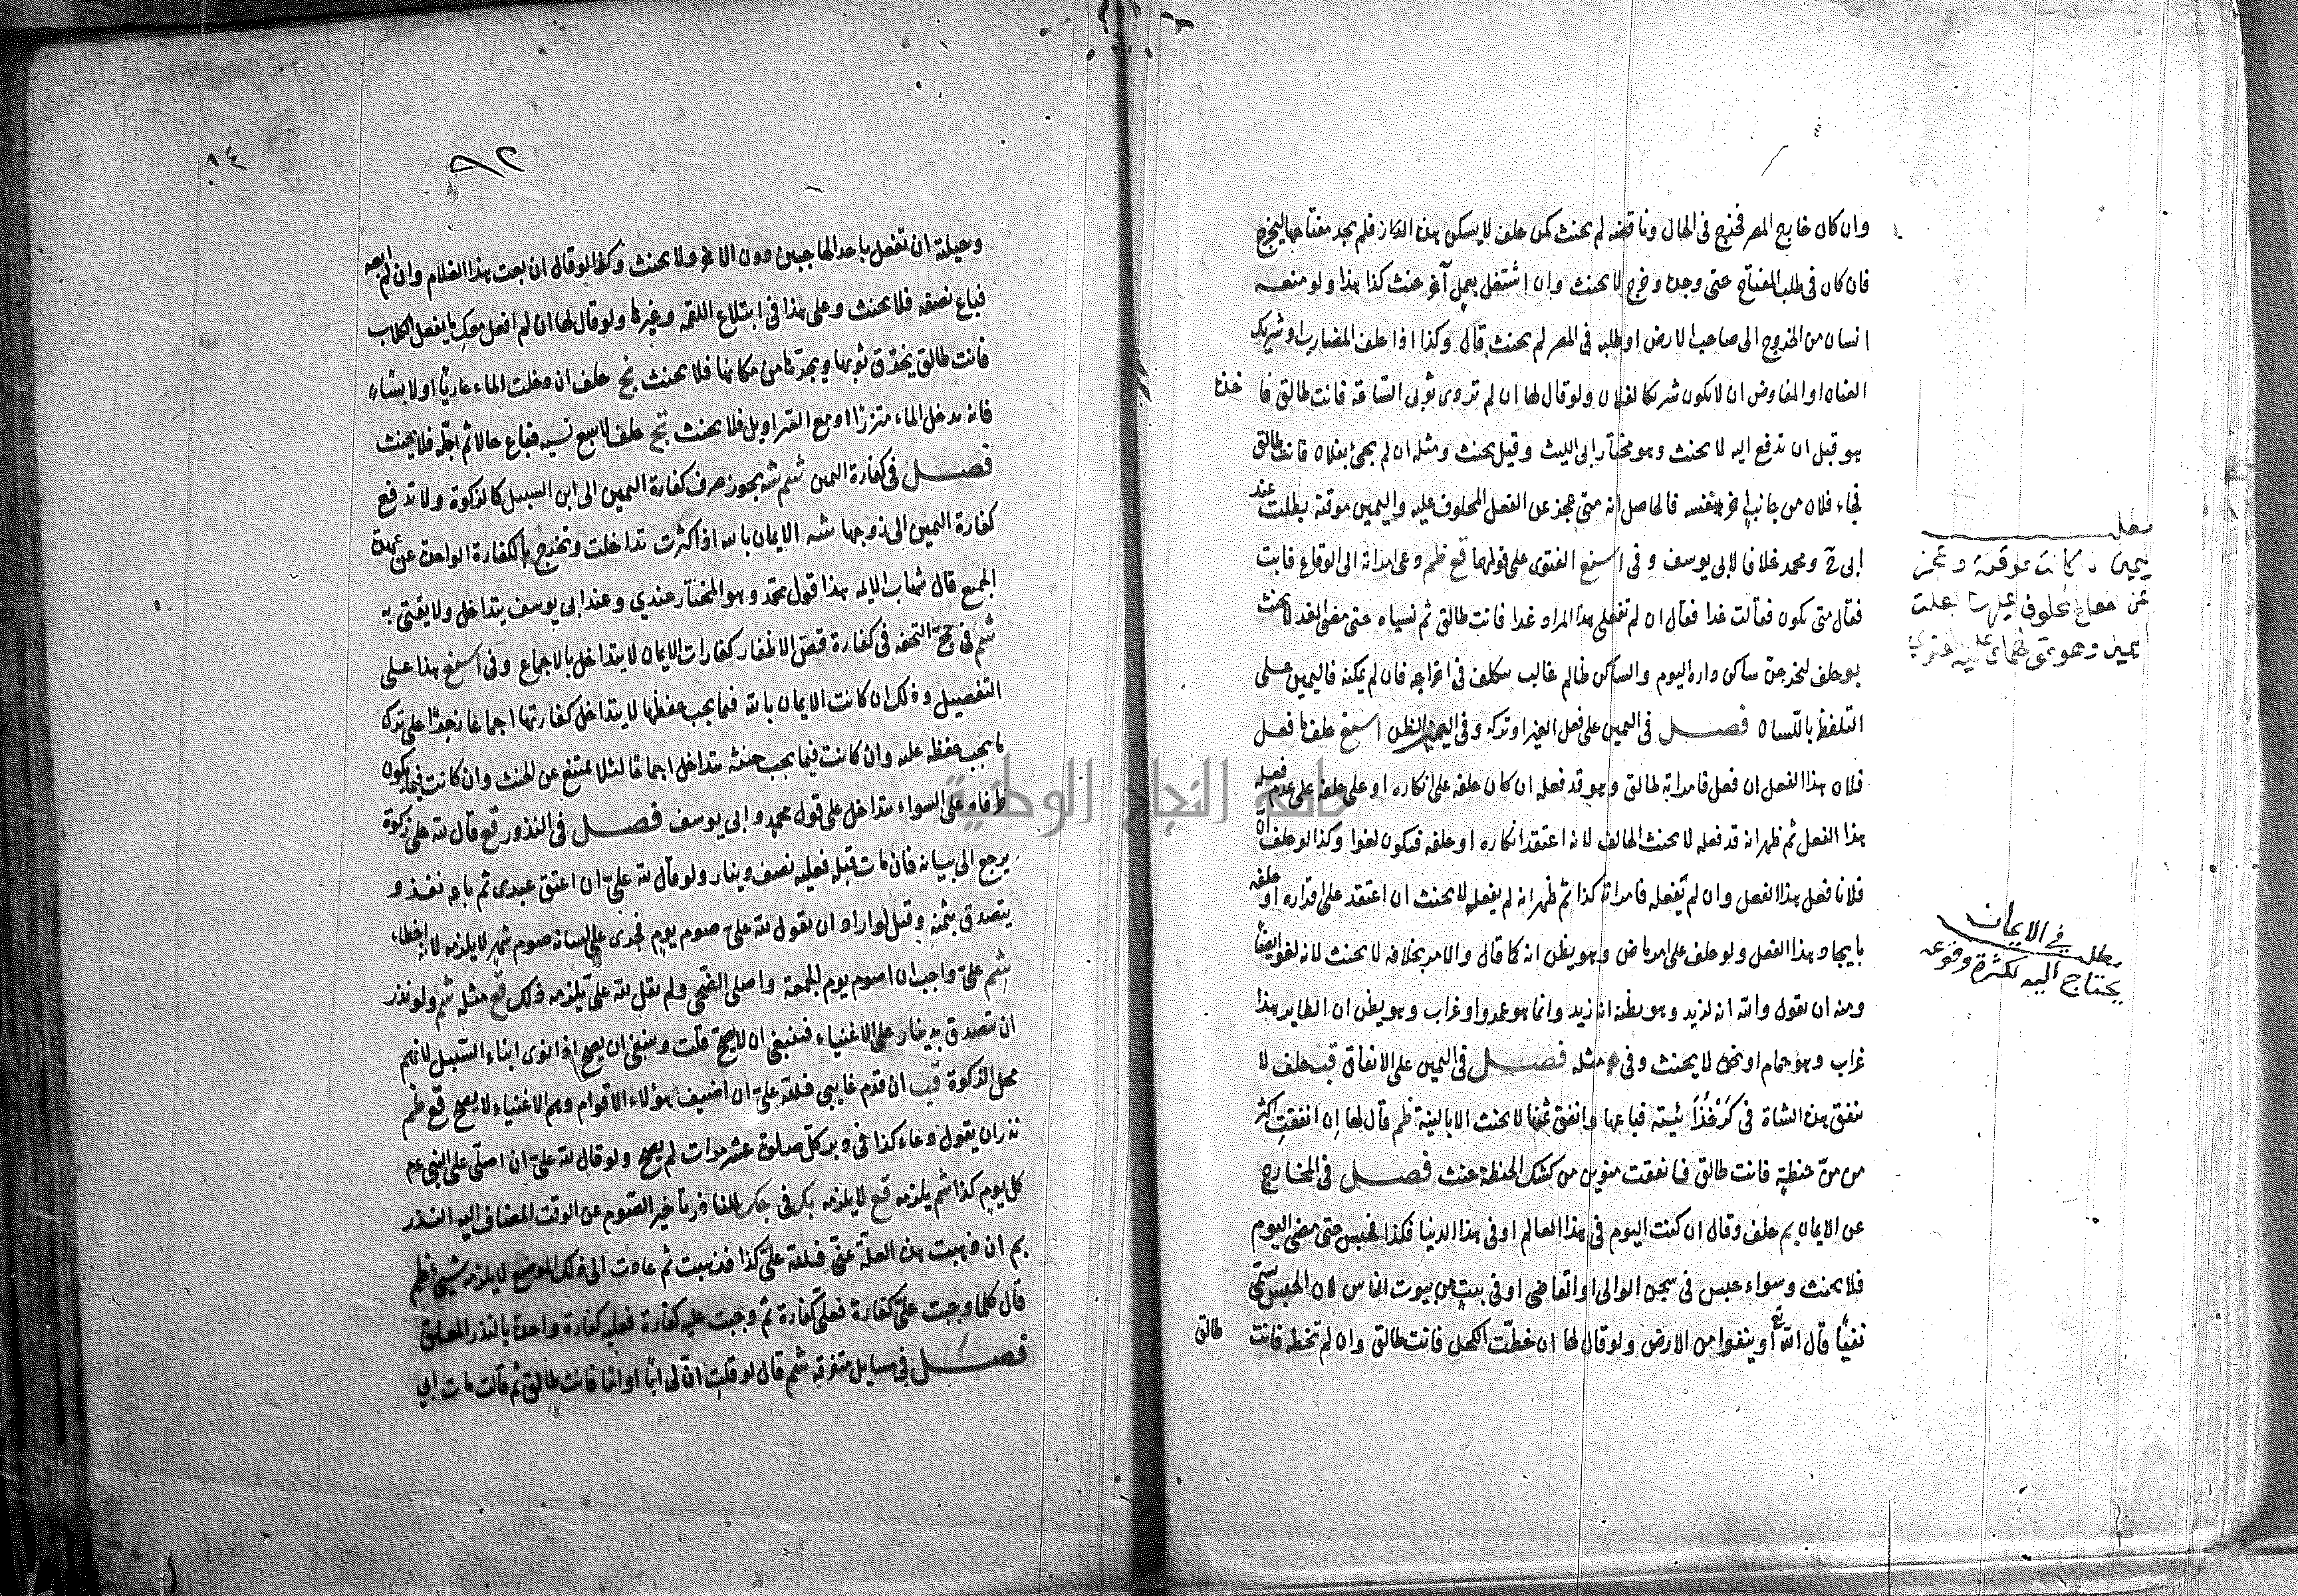 وان كان خارج المصر فخرج فى الحال وناقضه لم يحنث كمن حلف لا يسكن هذه الدار فلم يجد مفتاحها ليخرج
فان كان فى طلب المفتاح حتى وجده وخرج لا يحنث وان اشتغل بعمل آخر حنث كذا هذا ولو منعه
انسان من الخروج الى صاحب الارض او طلبه فى المصر لم يحنث قال وكذا اذا حلف المضارب او شريك
العنان او المفاوض ان لا يكون شريكا لفلان ولو قال لها ان لم تردى ثوبى الساعة فانت طالق فا خذه
هو قبل ان تدفع اليه لا يحنث وهو مختار ابى الليث وقيل يحنث ومثله ان لم تجئ بفلان فانت طالق
فجاء فلان من جانب آخر بنفسه فالحاصل انه متى عجز عن الفعل المحلوف عليه واليمين موقتة بطلت عند
ابى ح ومحمد خلافا لابى يوسف وفى الفتوى على قولهما قع ظم دعى امراته الى الوقاع فابت
فقال متى يكون فقالت غدا فقال ان لم تفعلى هذا المراد غدا فانت طالق ثم نسياه حتى مضى الغد لا يحنث
بو حلف ليخرجن ساكن داره اليوم والساكن ظالم غالب يتكلف فى اخراجه فان لم يمكنه فاليمين على
التلفظ باللسان فصل فى اليمين على فعل الغير او تركه وفى اليمين الظن حلف ما فعل
فلان هذا الفعل ان فعل فامراته طالق وهو قد فعله ان كان حلفه على انكاره او على حلفه على عدم فعله
هذا الفعل ثم ظهر انه قد فعله لا يحنث الحالف لانه اعتقد انكاره او حلفه فيكون لغوا وكذا لو حلف ان
فلانا فعل هذا الفعل وان لم يفعله فامراته كذا ثم ظهر انه لم يفعله لا يحنث ان اعتقد على اقراره او حلفه
بايجاد هذا الفعل ولو حلف على امر ماض وهو يظن انه كما قال والامر بخلافه لا يحنث لانه لغو ايضا
ومنه ان يقول والله انه لزيد وهو يظنه انه زيد وانما هو عمرو او غراب وهو يظن ان الطاير هذا
غراب وهو حمام او نحوه لا يحنث وفى مثله فصل فى اليمين على الانفاق قب حلف لا
ينفق هذه الشاة فى فباعها وانفق ثمنها لا يحنث الا بالنية ظم قال لها ان انفقت اكثر
من من حنطة فانت طالق فانفقت منوين من كشك الحنطة حنث فصل فى المخارج
عن الايمان بم حلف وقال ان كنت اليوم فى هذا العالم او فى هذا الدنيا فكذا فحبس حتى مضى اليوم
فلا يحنث وسواء حبس فى سجن الوالى او القاضى او فى بيت من بيوت الناس لان الحبس يسمى
نفيا قال الله تع او ينفوا من الارض ولو قال لها ان خطت الكحل فانت طالق وان لم تخطه فانت طالق
مطلب
يمين اذا كانت موقتة وعجز
عن الفعل المحلوف عليها بطلت
مطلب فى الايمان
يحتاج اليه لكثرة وقوعه
٨٢
٨٤
وحيلته ان تفعل باحد الحاجبين دون الاخر ولا يحنث وكذا لو قال ان بعت هذا الغلام وان لم ابعه
فباع نصفه فلا يحنث وعلى هذا فى ابتلاع اللقمة وغيرها ولو قال لها ان لم افعل بك ما يفعل الكلاب
فانت طالق يخرق ثوبها ويجرها من مكانها فلا يحنث نج حلف ان دخلت الماء عاريا او لابسا
فانه يدخل الماء متزرا او مع السراويل فلا يحنث نج حلف لا يبيع نسية فباع حالا ثم اجله فلا يحنث
فصل فى كفارة اليمين شم شه يجوز صرف كفارة اليمين الى ابن السبيل كالزكوة ولا تدفع
كفارة اليمين الى زوجها شه الايمان بالله اذا كثرت تداخلت وتخرج بالكفارة الواحدة عن عهدة
الجميع قال شهاب الايمه هذا قول محمد وهو المختار عندي وعند ابى يوسف يتداخل ولا يفتى به
شم فى التحفه فى كفارة قص الاظفار كفارات الايمان لا يتداخل بالاجماع وفى هذا على
التفصيل وذلك ان كانت الايمان بالله فيما يجب حفظها لا يتداخل كفارتها اجماعا زجرا على ترك
ما يجب حفظه عليه وان كانت فيما يجب حنثه يتداخل اجماعا لئلا يمتنع عن الحنث وان كانت فيما يكون
طرفاه على السواء يتداخل على قول محمد وابى يوسف فصل فى النذور قع قال لله على زكوة
يرجع الى بيانه فان مات قبله فعليه نصف دينار ولو قال لله على ان اعتق عبدى ثم باعه نفذ و
يتصدق بثمنه وقيل لو اراد ان يقول لله على صوم يوم فجرى على لسانه صوم شهر لا يلزمه لانه اخطاء
شم على واجب ان اصوم يوم الجمعة واصلى الضحى ولم يقل لله على يلزمه ذلك قع مثله شم ولو نذر
ان يتصدق بدينار على الاغنياء فينبغى ان لا يصح قلت وينبغى ان يصح اذا نوى ابناء السبيل لانهم
محل الزكوة قب ان قدم غايبى فلله على ان اضيف هؤلاء الاقوام وهم الاغنياء لا يصح قع ظم
نذر ان يقول دعاء كذا فى دبر كل صلوة عشر مرات لم يصح ولو قال لله على ان اصلى على النبى عم
كل يوم كذا شم يلزمه قع لا يلزمه بكر فى المنافر تاخير الصوم عن الوقت المضاف اليه النذر
بم ان ذهبت هذه العلة عنى فلله على كذا فذهبت ثم عادت الى ذلك الموضع لا يلزمه شئ ظم
قال كلما وجبت على كفارة فعلى كفارة ثم وجبت عليه كفارة فعليه كفارة واحدة بالنذر المعلق
فصل فى مسايل متفرقه شم قال لو قلت ان لى ابا او اما فانت طالق ثم قالت مات ابى